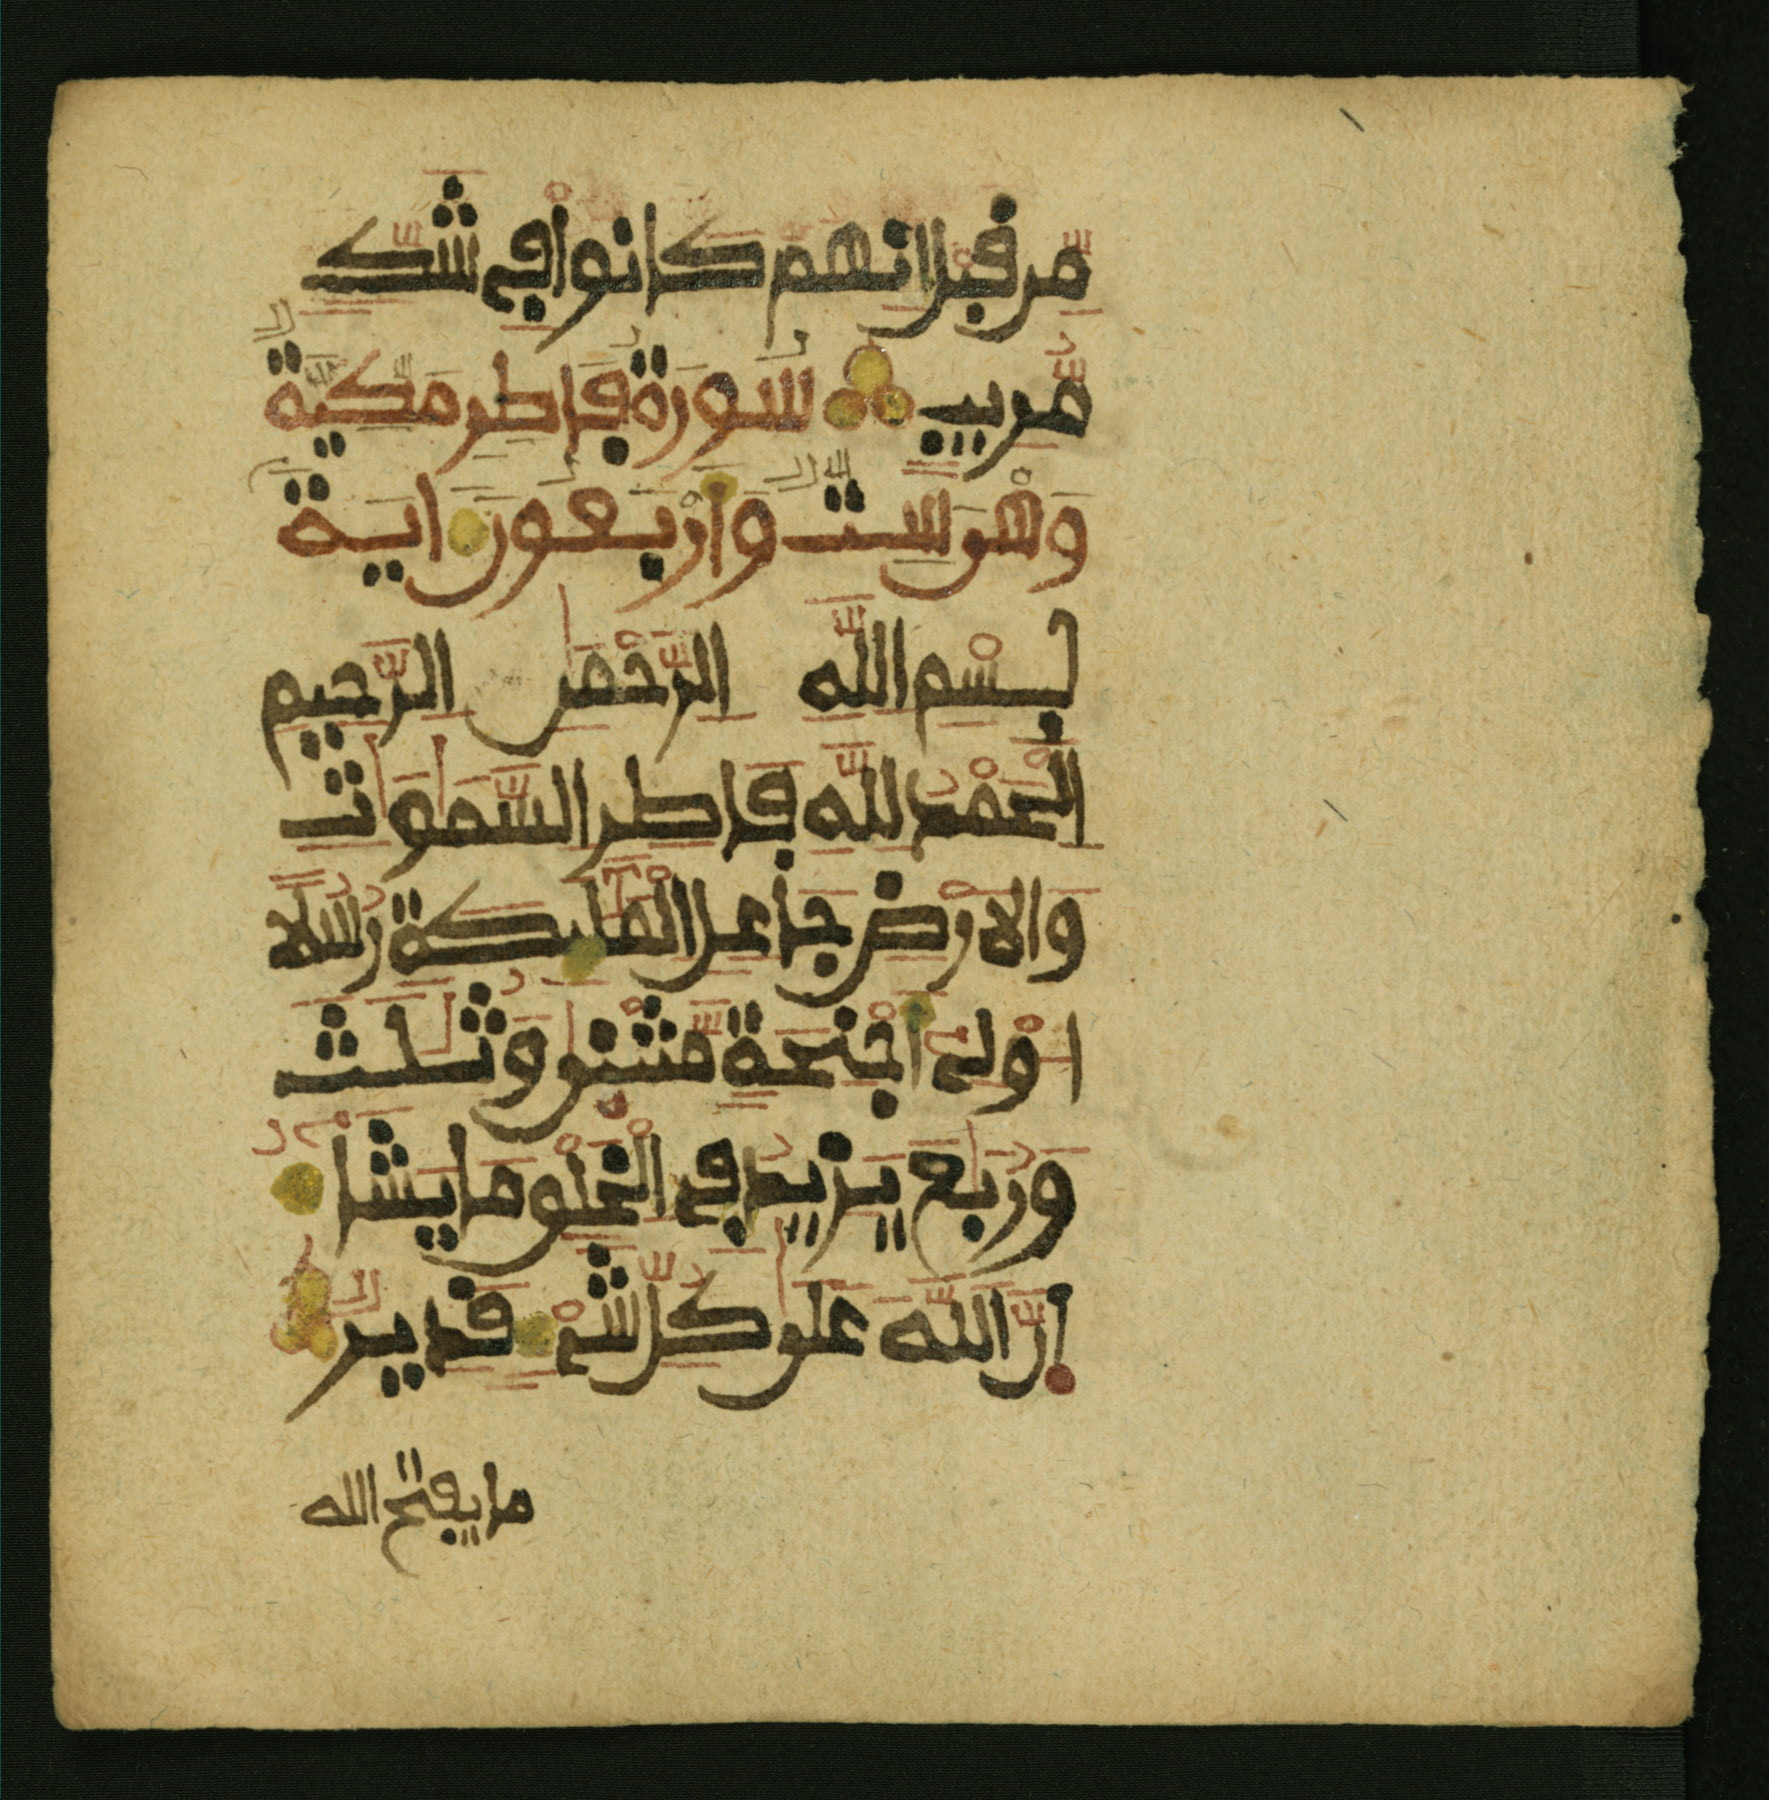 مِّن قَبْلُ إِنَّهُمْ كَانُوا۟ فِے شَكٍّ
مُّرِيبٍ سُورَةُ فَاطِرٍ مَكِّيَّةٌ
وَهْىَ سِتٌّ وَأَرْبَعُونَ ءَايَةً
بِسْمِ اللَّهِ الرَّحْمَٰنِ الرَّحِيمِ
الْحَمْدُ لِلَّهِ فَاطِرِ السَّمَٰوَٰتِ
وَالَارْضِ جَاعِلِ الْمَلَٰٓئِكَةِ رُسُلاً
اوْلِےٓ أَجْنِحَةٍ مَّثْنَىٰ وَثُلَٰثَ
وَرُبَٰعَ يَزِيدُ فِے الْخَلْقِ مَا يَشَآءُ
إِنَّ اللَّهَ عَلَىٰ كُلِّ شَےْءٍ قَدِيرٌ
ما يفتح الله